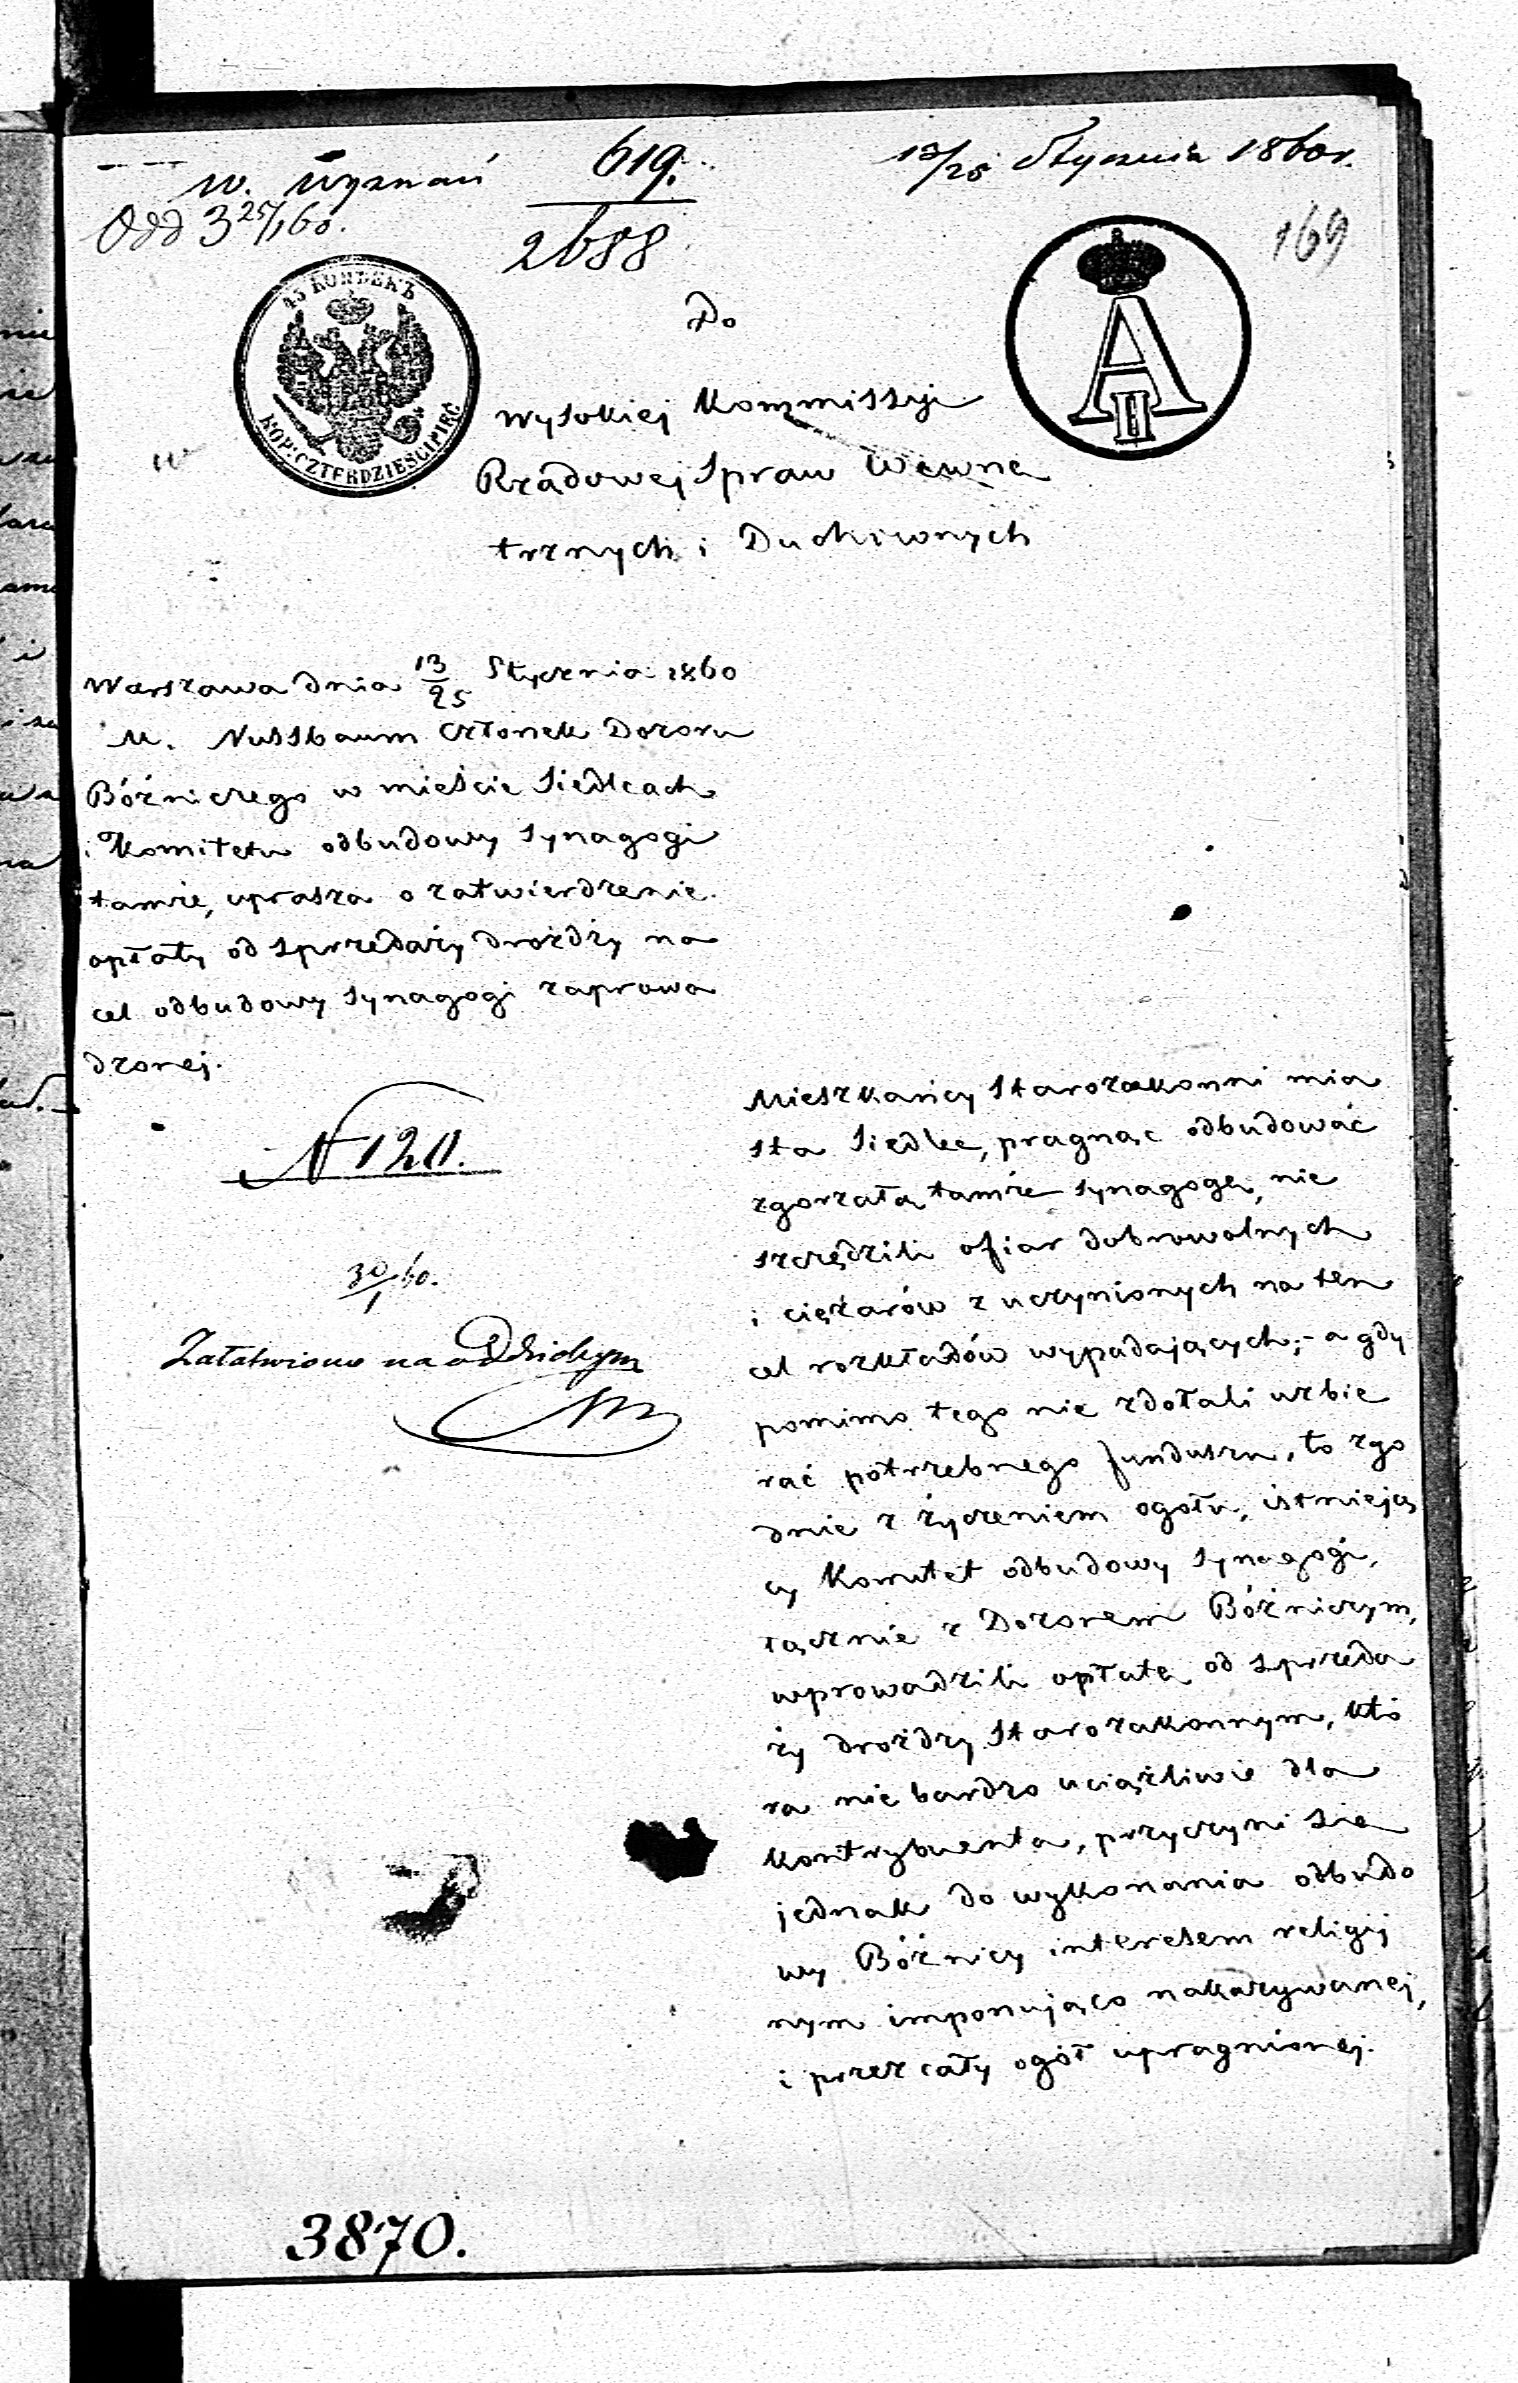 W. Wyznań
619.
13/25 Stycznia 1860 r.
Odd 3 25/1 60.
2688
169
45 КОПѢЕКЪ
KOP: CZTERDZIEŚCI PIĘĆ
A II
Do
Wysokiej Kommissyi
Rządowej Spraw Wewnę
trznych i Duchownych
Warszawa dnia 13/25 Stycznia 1860
M. Nussbaum Członek Dozoru
Bóźniczego w mieście Siedlcach
i Komitetu odbudowy Synagogi
tamże, uprasza o zatwierdzenie
opłaty od sprzedaży drożdży na
cel odbudowy Synagogi zaprowa
dzonej.
N 120.
30/1 60.
Załatwiono na oddzielnym
Mieszkańcy Starozakonni mia
sta Siedlec, pragnąc odbudować
zgorzałą tamże Synagogę, nie
szczędzili ofiar dobrowolnych
i ciężarów z uczynionych na ten
cel rozkładów wypadających; - a gdy
pomimo tego nie zdołali uzbie
rać potrzebnego funduszu, to zgo
dnie z życzeniem ogółu, istnieją
cy Komitet odbudowy Synagogi,
łącznie z Dozorem Bóźniczym,
wprowadzili opłatę od sprzeda
ży drożdży Starozakonnym, któ
ra nie bardzo uciążliwie dla
kontrybuenta, przyczyni się
jednak do wykonania odbudo
wy Bóźnicy interesem religij
nym imponująco nakazywanej,
i przez cały ogół upragnionej.
3870.